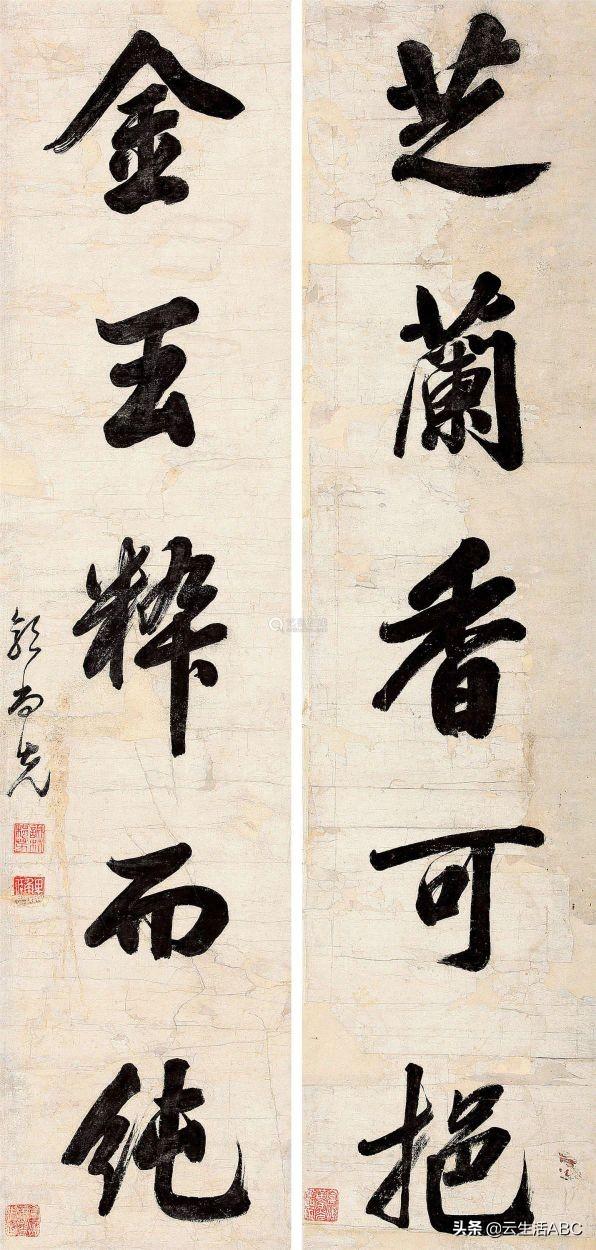 芝蘭香可挹
金玉粹而純
郭尚先
头条@云生活ABC